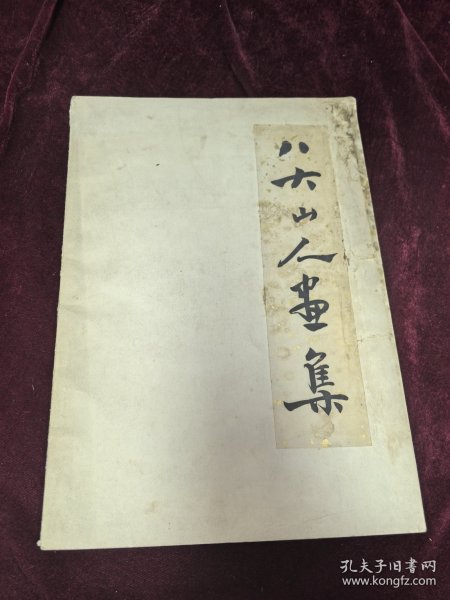 八大山人畫集
孔夫子旧书网
www.kongfz.com